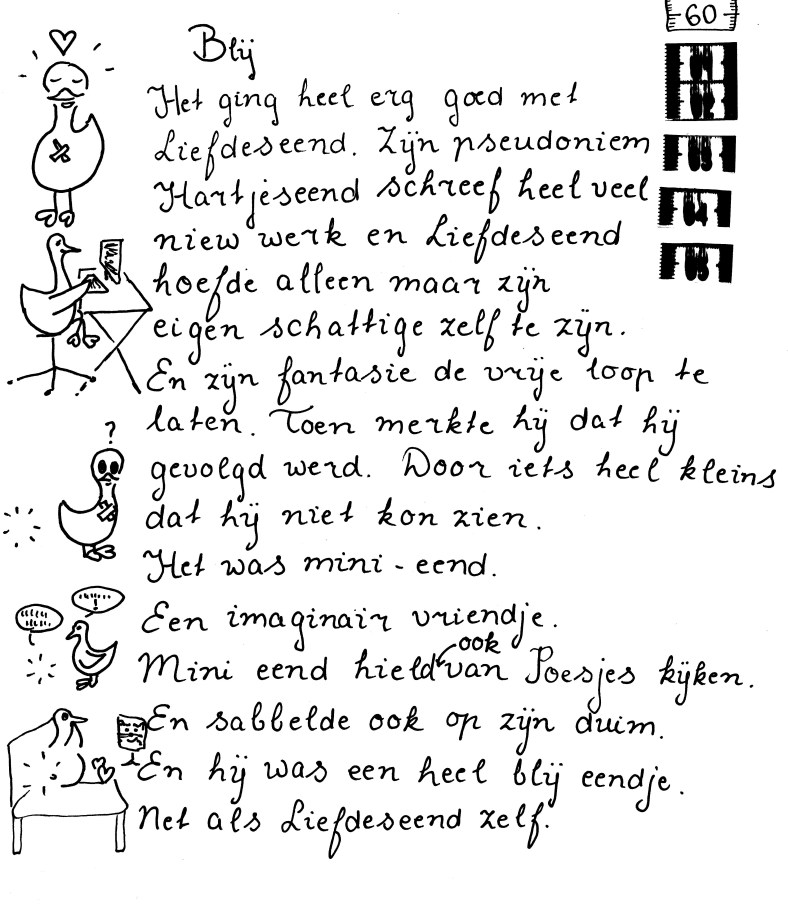 60
Blij
01
02
03
04
05
Het ging heel erg goed met
Liefdeseend. Zijn pseudoniem
Hartjeseend schreef heel veel
niew werk en Liefdeseend
hoefde alleen maar zijn
eigen schattige zelf te zijn.
En zijn fantasie de vrije loop te
laten. Toen merkte hij dat hij
?
gevolgd werd. Door iets heel kleins
dat hij niet kon zien.
Het was mini-eend.
Een imaginair vriendje.
ook
Mini eend hield van Poesjes kijken.
En sabbelde ook op zijn duim.
En hij was een heel blij eendje.
Net als Liefdeseend zelf.